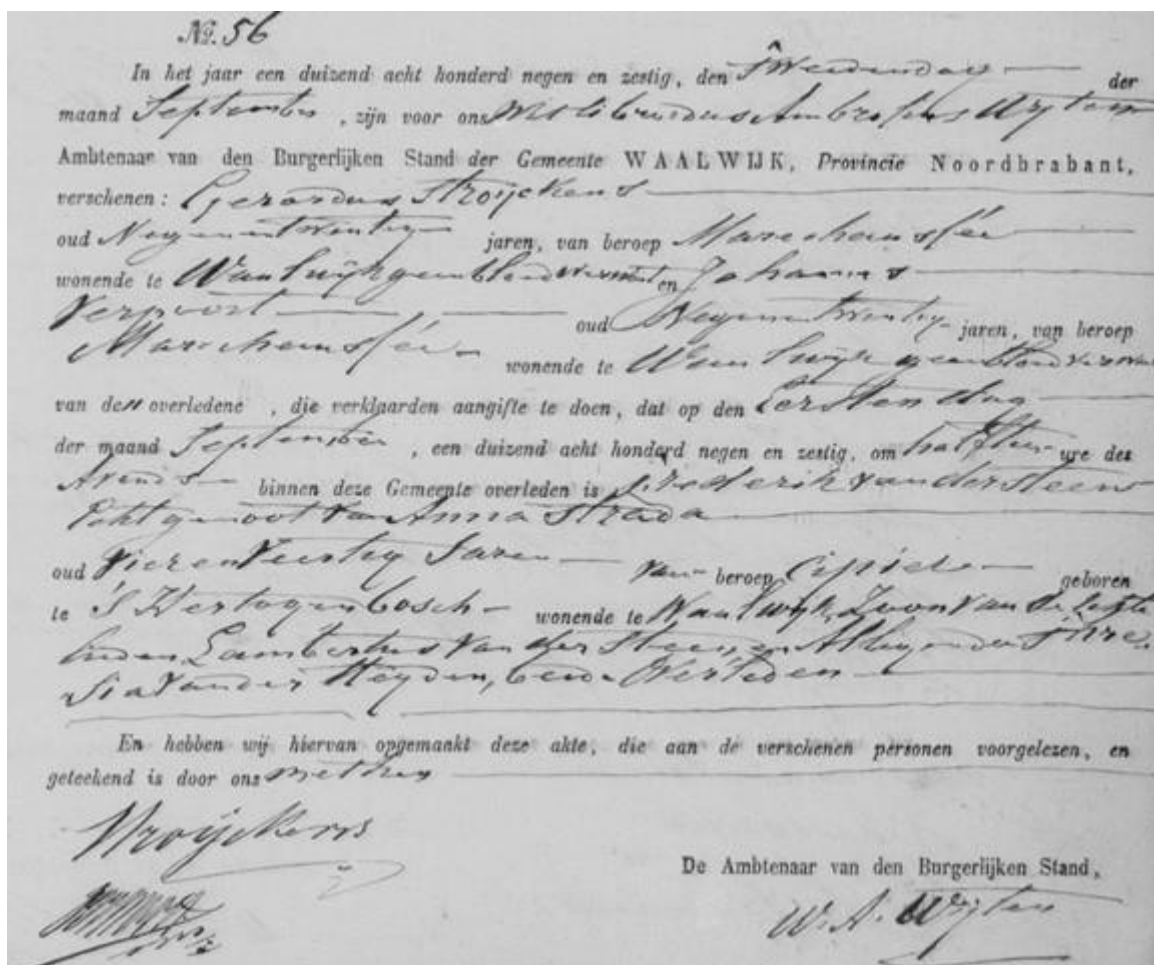 No. 56
In het jaar een duizend acht honderd negen en zestig, den Tweedendag der
maand September, zijn voor ons Willibrordus Ambrosius Wijten
Ambtenaar van den Burgerlijken Stand der Gemeente WAALWIJK, Provincie Noordbrabant,
verschenen: Gerardus Stroijckens
oud Negenentwintig jaren, van beroep Marechaussée
wonende te Waalwijk geen bloedverwant en Johannes
Verpoort oud Negenentwintig jaren, van beroep
Marechaussée wonende te Waalwijk geen bloedverwant
van den overledene, die verklaarden aangifte te doen, dat op den Eersten dag
der maand September, een duizend acht honderd negen en zestig, om half tien ure des
Avonds binnen deze Gemeente overleden is Frederik van der Steen
Echtgenoot van Anna Strada
oud Vierenveertig Jaren van beroep Cipier geboren
te 'S Hertogenbosch wonende te Waalwijk, Zoon van de Echte
lieden Lambertus van der Steen en Allegonda There
sia van der Heyden, beide Overleden
En hebben wij hiervan opgemaakt deze akte, die aan de verschenen personen voorgelezen, en
geteekend is door ons met hen
Stroijckens
De Ambtenaar van den Burgerlijken Stand,
W. A. Wijten